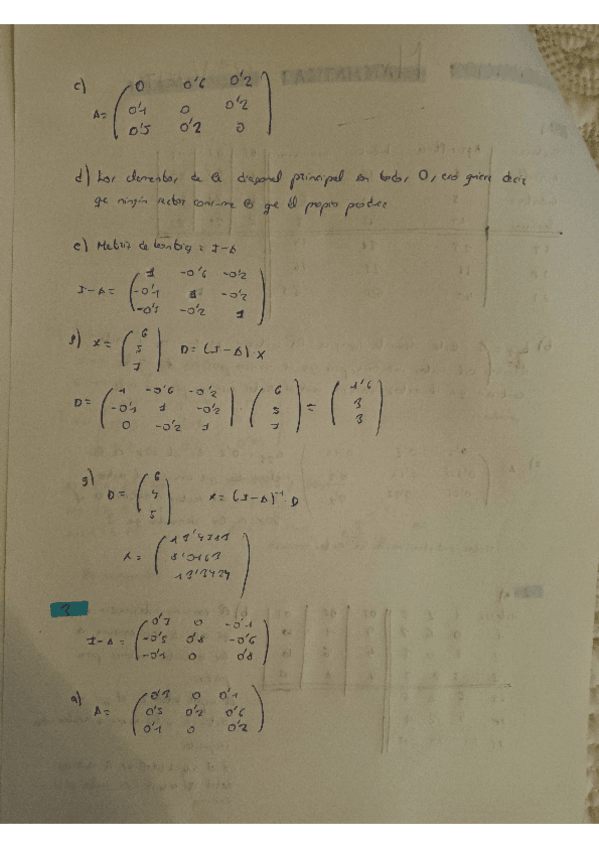 c)
A= ( 0 0'6 0'2
0'1 0 0'2
0'5 0'2 0 )
d) Los elementos de la diagonal principal son todos 0, eso quiere decir
que ningún sector consume lo que él propio produce
e) Matriz de Leontief = I-A
I-A= ( 1 -0'6 -0'2
-0'1 1 -0'2
-0'5 -0'2 1 )
f) X= ( 6
5
7 ) D=(I-A)·X
D= ( 1 -0'6 -0'2
-0'1 1 -0'2
0 -0'2 1 ) · ( 6
5
7 ) = ( 1'6
3
3 )
g) D= ( 6
4
5 ) X=(I-A)⁻¹·D
X=
3
I-A= ( 0'7 0 -0'1
-0'5 0'8 -0'6
-0'1 0 0'8 )
a) A= ( 0'3 0 0'1
0'5 0'2 0'6
0'1 0 0'2 )